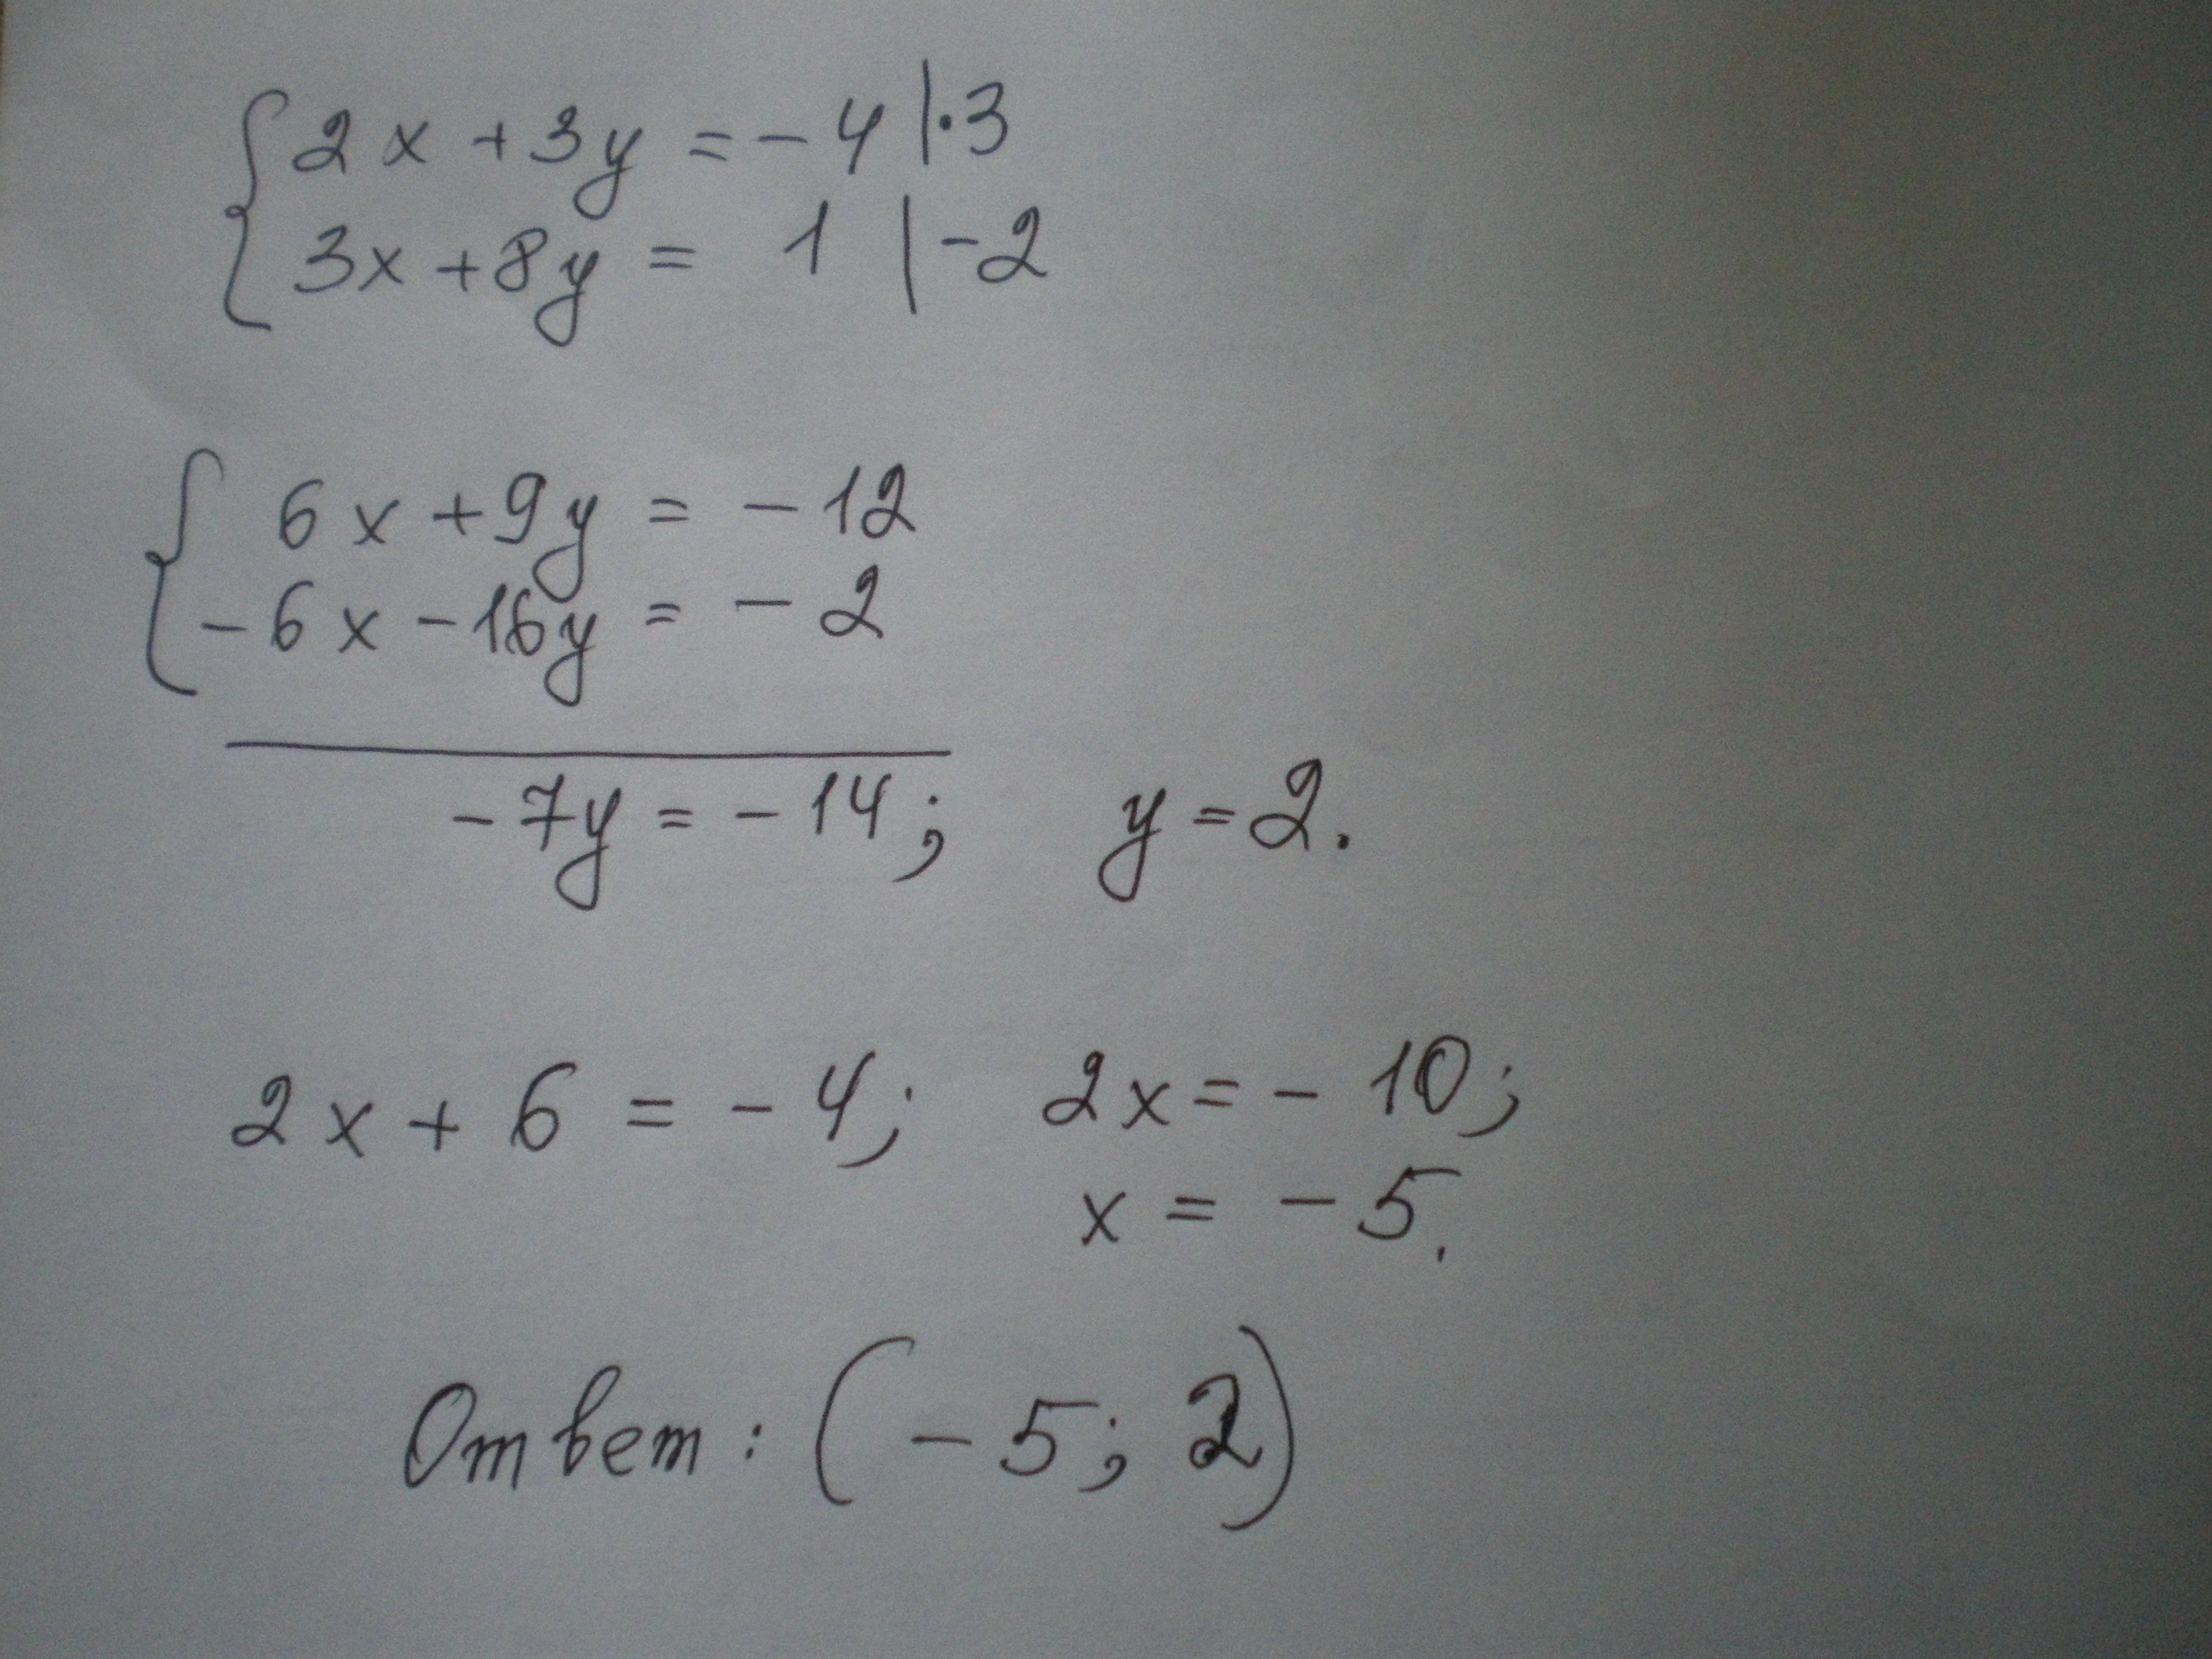 { 2x + 3y = - 4 | · 3
3x + 8y = 1 | - 2
{ 6x + 9y = - 12
- 6x - 16y = - 2
- 7y = - 14; y = 2.
2x + 6 = - 4; 2x = - 10;
x = - 5.
Ответ: (- 5; 2)